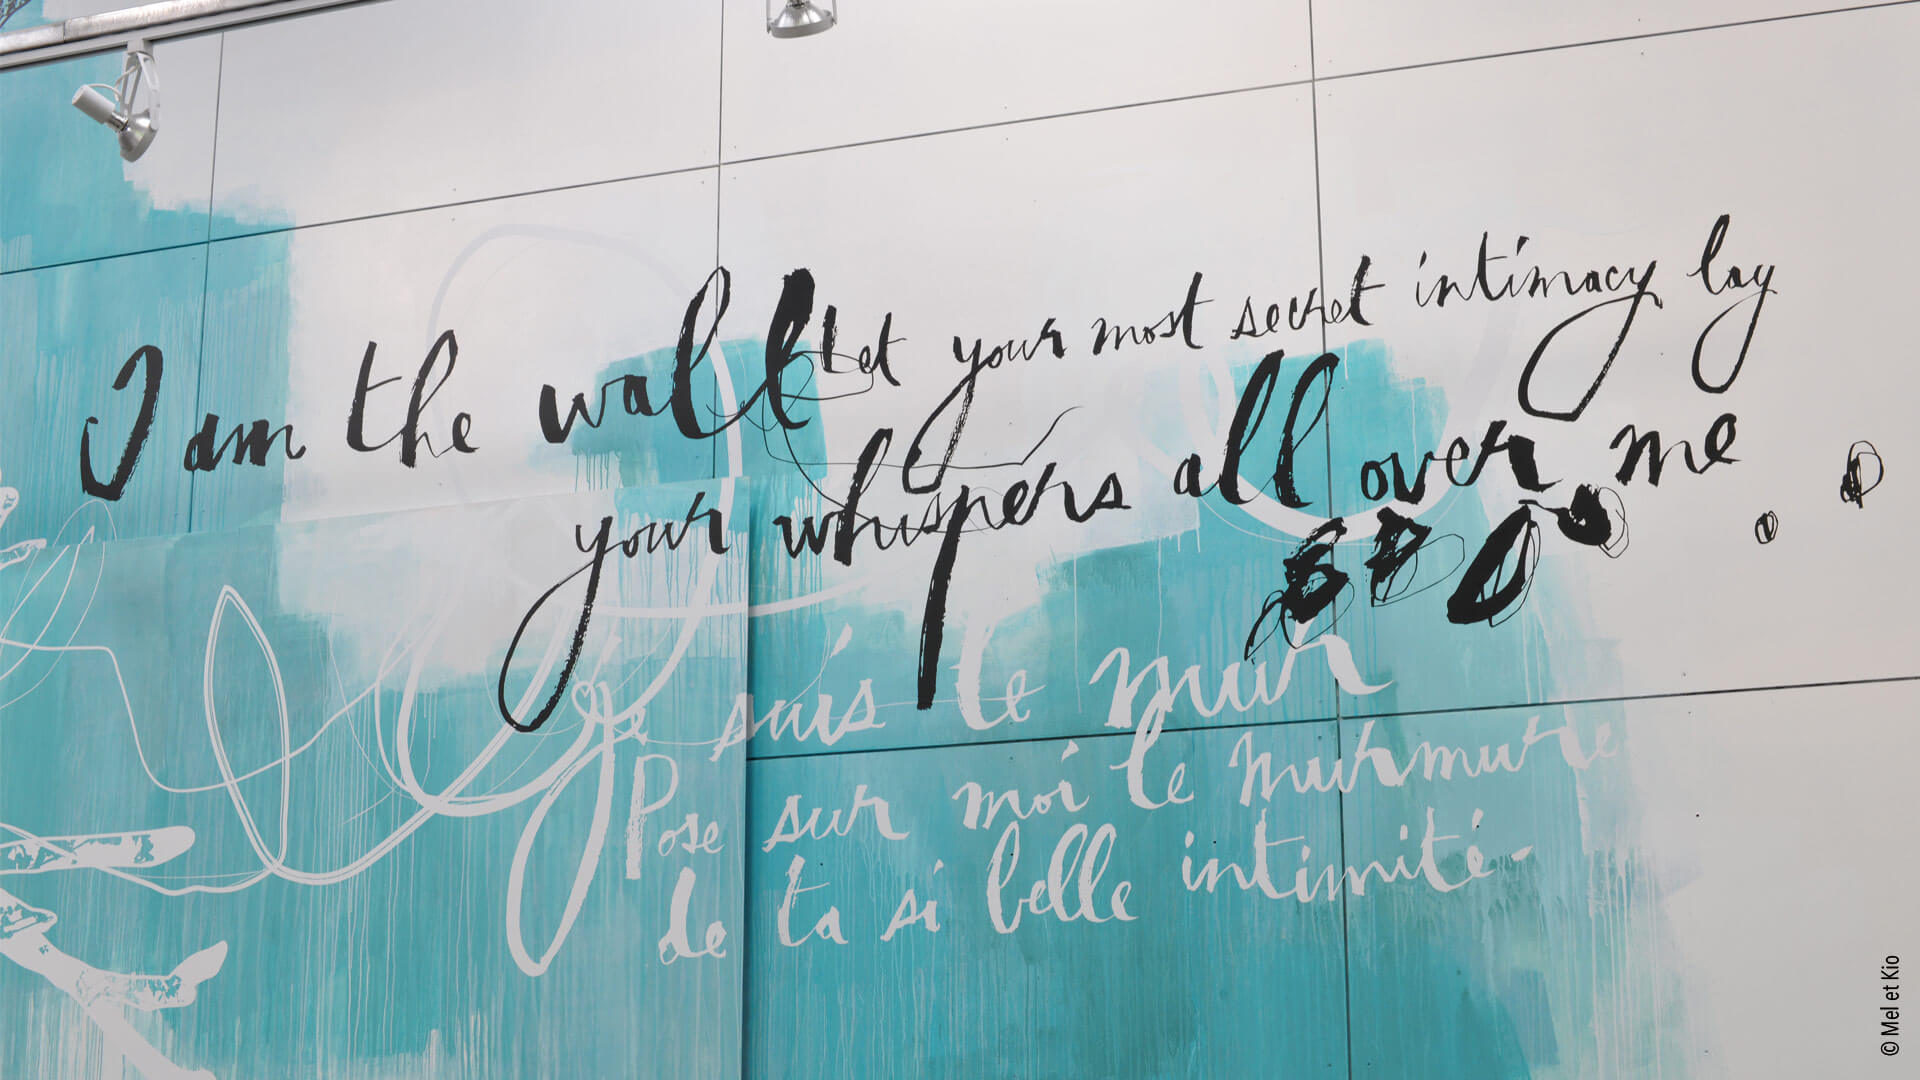 I am the wall let your most secret intimacy lay
your whispers all over me
Je suis le mur
Pose sur moi le murmure
de ta si belle intimité-
© Mel et Kio